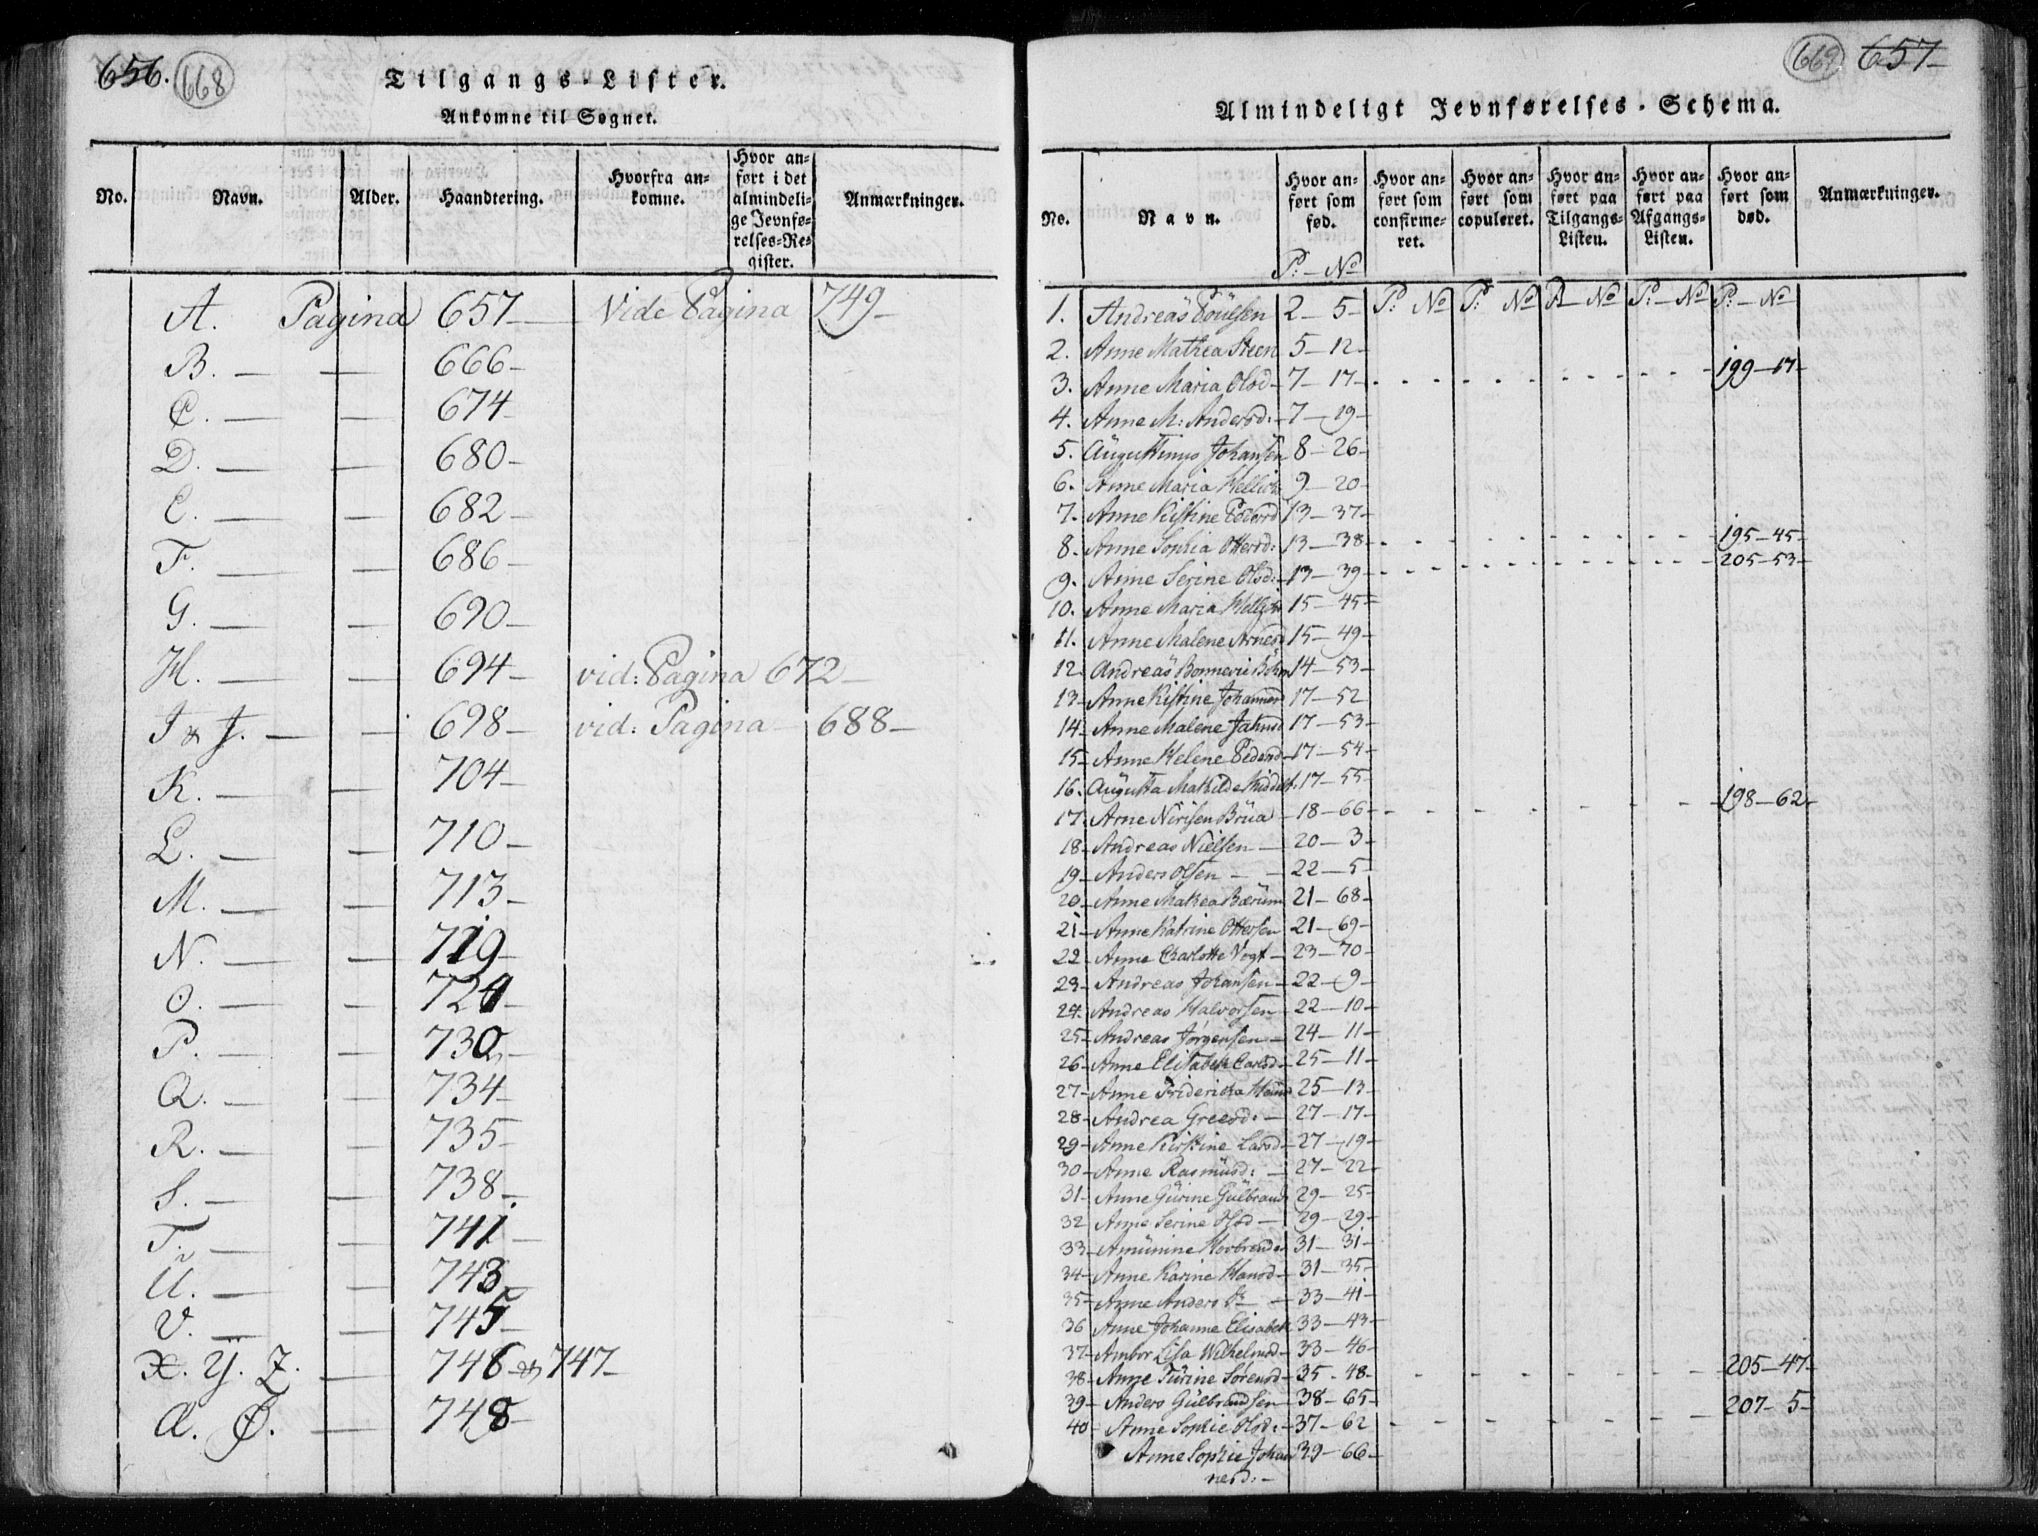 656. 668
Tilgangs-Lister.
Ankomne til Sognet.
No. Navn. Alder. Haandtering. Hvorfra ankomne. Hvor anført i det almindelige Jevnførelses-Register. Anmærkninger.
A. Pagina 657 Vide Pagina 749
B. — — 666
C. — 674
D. — — 680
E. — — 682
F. — — 686
G. — — 690
H. — — 694 vid: Pagina 672
I & J. — — 698 vid: Pagina 688
K. — — 704
L. — — 710
M. — — 713
N. — — 719
O. — — 724
P. — — 730
Q. — — 734
R. — — 735
S. — — 738
T. — — 741
U. — — 743
V. — — 745
X. Y. Z. — 746 & 747
Æ. Ø. — 748
669 657
Almindeligt Jevnførelses-Schema.
No. Navn. Hvor anført som fød. Hvor anført som confirmeret. Hvor anført som copuleret. Hvor anført paa Tilgangs-Listen. Hvor anført paa Afgangs-Listen. Hvor anført som død. Anmærkninger.
P: — No
1. Andreas Poulsen 2 — 5 P: No P: No P: No P: No P: No
2. Anne Mathea Steen 5 — 12
3. Anne Maria Olsd 7 — 17 199 — 17
4. Anne M: Andersd: 7 — 19
5. Augustinus Johansen 8 — 26
6. Anne Maria 9 — 20
7. Anne Kistine Pedersd 13 — 37
8. Anne Sophia Ottersd: 13 — 38 195 — 45
9. Anne Serine Olsd: 13 — 39 205 — 53
10. Anne Maria 15 — 45
11. Anne Malene Arnesd 15 — 49
12. Andreas Bonnevie 14 — 53
13 Anne Kistine Johannesd 17 — 52
14 Anne Malene 17 — 53
15 Anne Helene Pedersd 17 — 54
16. Augusta Mathilde Middelt: 17 — 55
17. Arne Nirisen Brua 18 — 66 198 — 62
18 Andreas Nielsen 20 — 3
19 Anders Olsen 22 — 5
20 Anne Mathea Bærum 21 — 68
21 Anne Katrine Ottersen 21 — 69
22 Anne Charlotte Vogt 23 — 70
23 Andreas Johansen 22 — 9
24 Andreas Halvorsen 22 — 10
25 Andreas Jørgensen 24 — 11
26 Anne Elisabeth Carlsd 25 — 11
27 Anne Fridericka 25 — 13
28 Andrea Greesd: 27 — 17
29 Anne Kirstine Larsd 27 — 19
30 Anne Rasmusd: 27 — 22
31 Anne Gurine Gulbrands 29 — 25
32 Anne Serine Olsd 29 — 29
33 31 — 31
34 Anne Karine Hansd 31 — 35
35 Anne Anders 33 — 41
36 Anne Johanne Elisabeth 33 — 43
37 Ambor Lisa Wilhelmsd 33 — 46
38 Anne Turine Sørensd 35 — 48 205 — 47
39 Anders Gulbrandsen 38 — 65 207 — 5
40 Anne Sophie Olsd: 37 — 62
Anne Sophie Johan 39 — 66
nesd: